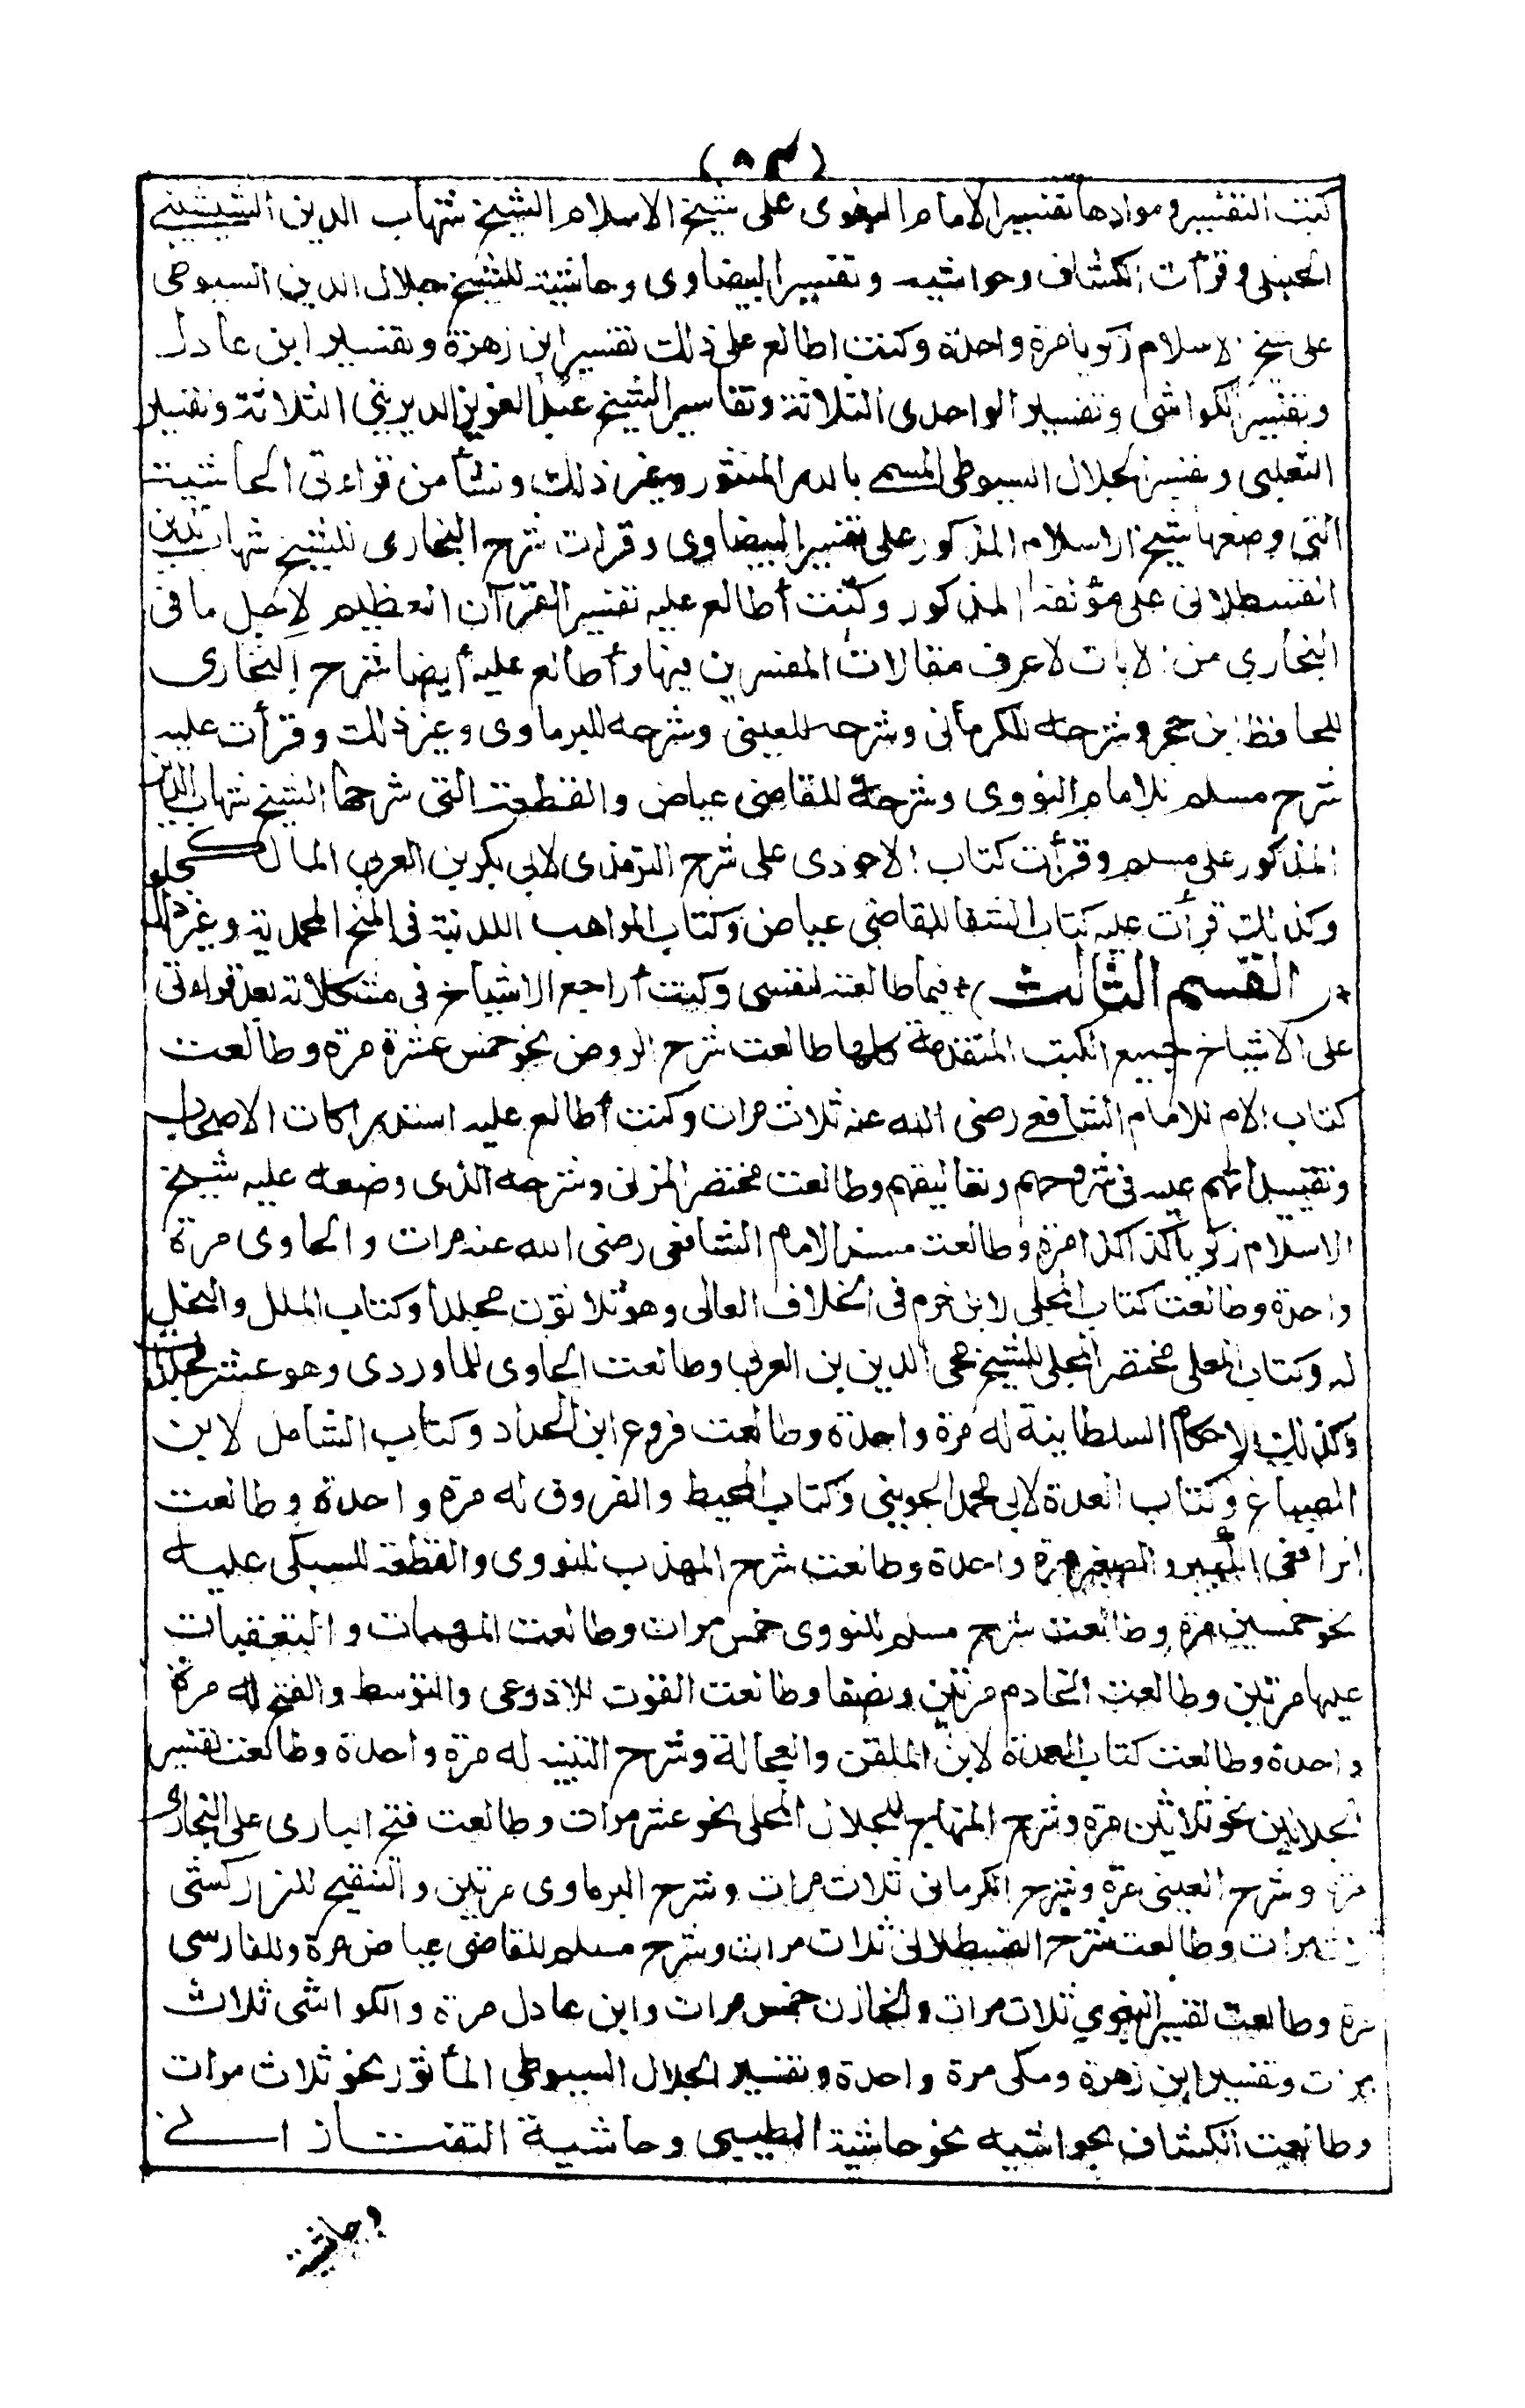 (٥٣)
كتب التفسير وموادها تفسير الامام البغوى على شيخ الاسلام الشيخ شهاب الدين الشيشينى
الحنبلى وقرأت الكشاف وحواشيه وتفسير البيضاوى وحاشيته للشيخ جلال الدين السيوطى
على شيخ الاسلام زكريا مرة واحدة وكنت اطالع على ذلك تفسير ابن زهرة وتفسير ابن عادل
وتفسير الكواشى وتفسير الواحدى الثلاثة وتفاسير الشيخ عبد العزيز الديرينى الثلاثة وتفسير
الثعلبى وتفسير الجلال السيوطى المسمى بالدر المنثور وغير ذلك ونشأ من قراءتى الحاشية
التى وضعها شيخ الاسلام المذكور على تفسير البيضاوى وقرات شرح البخارى للشيخ شهاب الدين
القسطلانى على مؤلفه المذكور وكنت أطالع عليه تفسير القرآن العظيم لاجل ما فى
البخاري من الايات لاعرف مقالات المفسرين فيها وأطالع عليه أيضا شرح البخارى
للحافظ ابن حجر وشرحه للكرمانى وشرحه للعينى وشرحه للبرماوى وغير ذلك وقرأت عليه
شرح مسلم للامام النووى وشرحه للقاضى عياض والقطعة التى شرحها الشيخ شهاب الدين
المذكور على مسلم وقرأت كتاب الاحوذى على شرح الترمذى لابى بكر بن العربى المالكى
وكذلك قرأت عليه كتاب الشفا للقاضى عياض وكتاب المواهب اللدنية فى المنح المحمدية وغير ذلك
*(القسم الثالث)* فيما طالعته لنفسى وكنت أراجع الاشياخ فى مشكلاته بعد قراءتى
على الاشياخ جميع الكتب المتقدمة كلها طالعت شرح الروض نحو خمس عشرة مرة وطالعت
كتاب الام للامام الشافعى رضى الله عنه ثلاث مرات وكنت أطالع عليه استدراكات الاصحاب
وتقييداتهم عليه فى شروحهم وتعاليقهم وطالعت مختصر المزنى وشرحه الذى وضعه عليه شيخ
الاسلام زكريا كذا كذا مرة وطالعت مسند الامام الشافعى رضى الله عنه مرات والحاوى مرة
واحدة وطالعت كتاب المحلى لابن حزم فى الخلاف العالى وهو ثلاثون مجلدا وكتاب الملل والنحل
له وكتاب المعلى مختصر المحلى للشيخ محى الدين بن العربى وطالعت الحاوى للماوردى وهو عشر مجلدات
وكذلك الاحكام السلطانية له مرة واحدة وطالعت فروع ابن الحداد وكتاب الشامل لابن
الصباغ وكتاب العدة لابى محمد الجوينى وكتاب المحيط والفروق له مرة واحدة وطالعت
الرافعى الكبير والصغير مرة واحدة وطالعت شرح المهذب للنووى والقطعة للسبكى عليه
نحو خمسين مرة وطالعت شرح مسلم للنووى خمس مرات وطالعت المهمات والتعقبات
عليها مرتين وطالعت الخادم مرتين ونصفا وطالعت القوت للاذرعى والتوسط والفتح له مرة
واحدة وطالعت كتاب العمدة لابن الملقن والعجالة وشرح التنبيه له مرة واحدة وطالعت تفسير
الجلالين نحو ثلاثين مرة وشرح المنهاج للجلال المحلى نحو عشر مرات وطالعت فتح البارى على البخارى
مرة وشرح العينى مرة وشرح الكرمانى ثلاث مرات وشرح البرماوى مرتين والتنقيح للزركشى
ثلاث مرات وطالعت شرح القسطلانى ثلاث مرات وشرح مسلم للقاضى عياض مرة وللفارسى
مرة وطالعت تفسير البغوي ثلاث مرات والخازن خمس مرات وابن عادل مرة والكواشى ثلاث
مرات وتفسير ابن زهرة ومكى مرة واحدة وتفسير الجلال السيوطى المأثور نحو ثلاث مرات
وطالعت الكشاف بحواشيه نحو حاشية الطيبى وحاشية التفتازانى
وحاشية